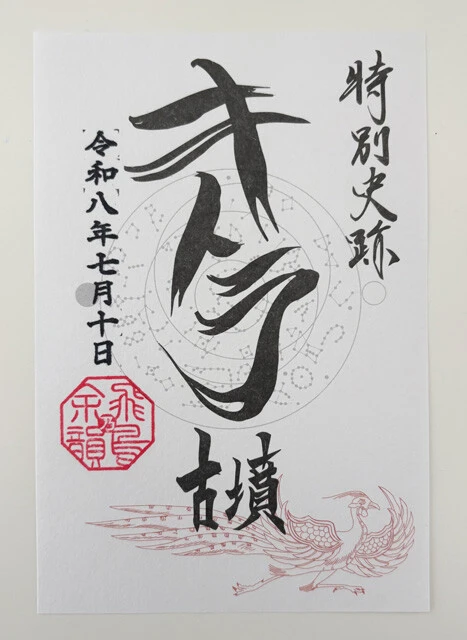 特別史跡
キトラ
古墳
令和八年七月十日
飛鳥
乃
余韻